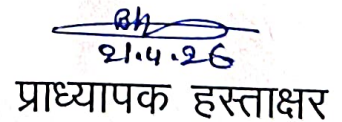 21.4.26
प्राध्यापक हस्ताक्षर